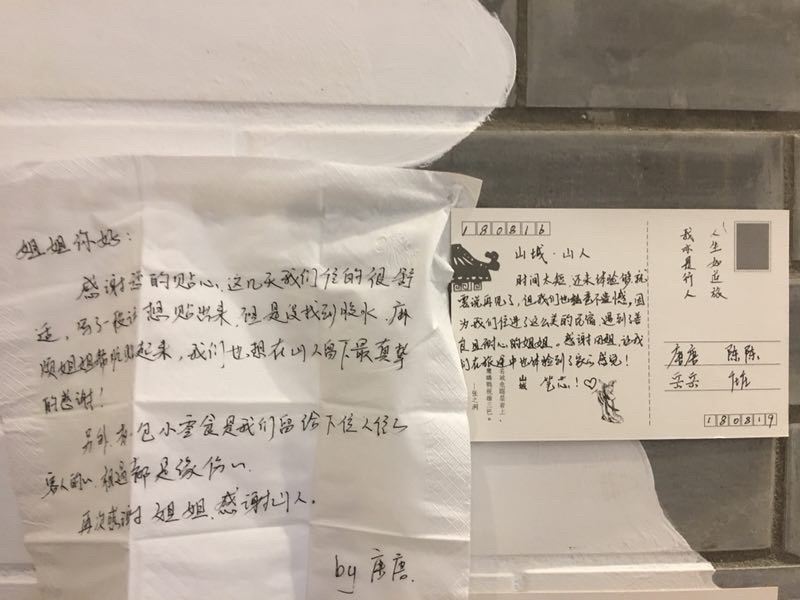 姐姐你好：
感谢您的贴心，这几天我们住的很舒
适，写了很话想贴出来，但是没找到胶水，麻
烦姐姐帮忙贴起来，我们也想在山人留下最真挚
的感谢！
另外有包小零食是我们留给下位入住
客人的，相遇都是缘份。
再次感谢姐姐，感谢山人。
by 唐唐
180816
山城·山人
时间太短，还未体验够就
要说再见了，但我们也毫不遗憾，因
为我们住进了这么美的民宿，遇到了善
良且耐心的姐姐。感谢姐，让我
们在旅途中也体验到了家的感觉！
笔芯！♡
名城危踞层岩上，
鹰瞵鹗视雄三巴。
—张之洞
人生如逆旅
我亦是行人
唐唐 陈陈
180819